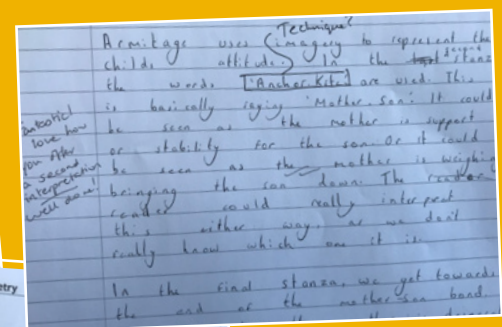 Technique?
Armitage uses (imagery to represent the
childs attitude.) In the second stanza
the words 'Anchor. Kite' are used. This
is basically saying 'Mother. Son'. It could
be seen as the mother is support
or stability for the son. Or it could
be seen as the mother is weighing
bringing the son down. The
reader could really interpret
this either way, as we don't
really know which one it is.
In the final stanza, we get towards
the end of the mother-son bond.
love how
you offer
a second
interpretation
well done.
etry